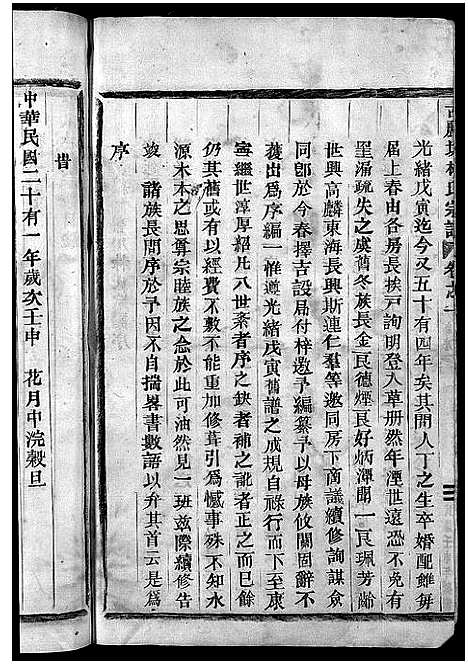 光緒戊寅迄今又五十有四年矣其間人丁之生卒婚配雖每
屆上春由各房長挨戶詢明登入草冊然年湮世遠恐不免有
罣漏疏失之虞舊冬族長金良德煙良好炳潭聞一良珮芳齡
世興高麟東海長興斯連仁羣等邀同房下商議續修詢謀僉
同卽於今春擇吉設局付梓邀予編纂予以母族攸關固辭不
獲出爲序編一惟遵光緒戊寅舊譜之成規自祿行而下至康
寧繼世淳厚紹凡八世紊者序之鈌者補之訛者正之而已餘
仍其舊或有以經費不敷不能加修葺引爲憾事殊不知水
源木本之思尊宗睦族之念於此可油然見一班兹際續修告
竣諸族長問序於予因不自揣畧書數語以弁其首云是爲
序
旹
中華民國二十有一年歲次壬申 花月中浣穀旦
宗譜 卷之一